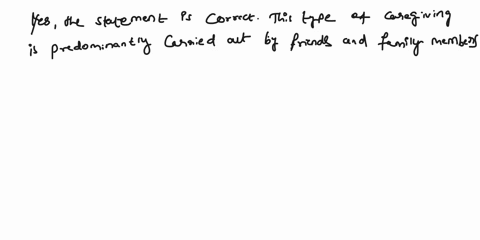 Yes, the statement is correct. This type of caregiving
is predominantly carried out by friends and family members